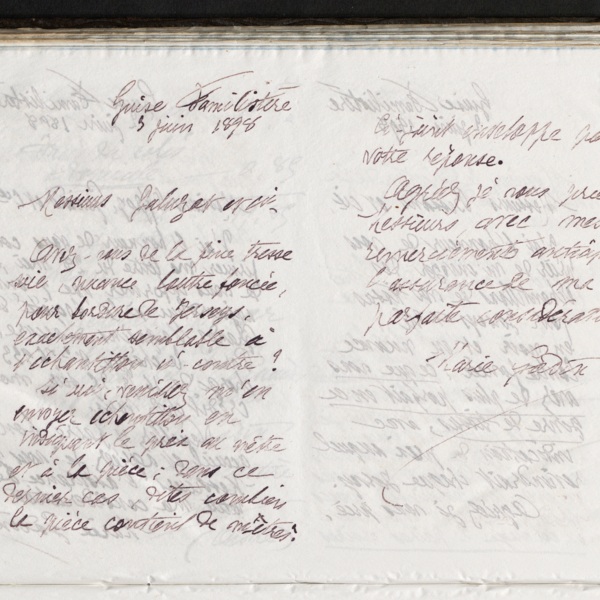 Guise Familistère
3 juin 1898
Messieurs
Avez-vous de la fine tresse
soie nuance loutre foncée,
pour bordure de jerseys,
exactement semblable à
l'échantillon ci-contre?
Si oui, veuillez m'en
envoyer échantillon en
indiquant le prix au mètre
et à la pièce; dans ce
dernier cas dites combien
la pièce contient de mètres.
Ci-joint enveloppe po
votre réponse.
Agréez je vous prie
Messieurs, avec mes
remerciements anticip
l'assurance de ma
parfaite considérati
Marie